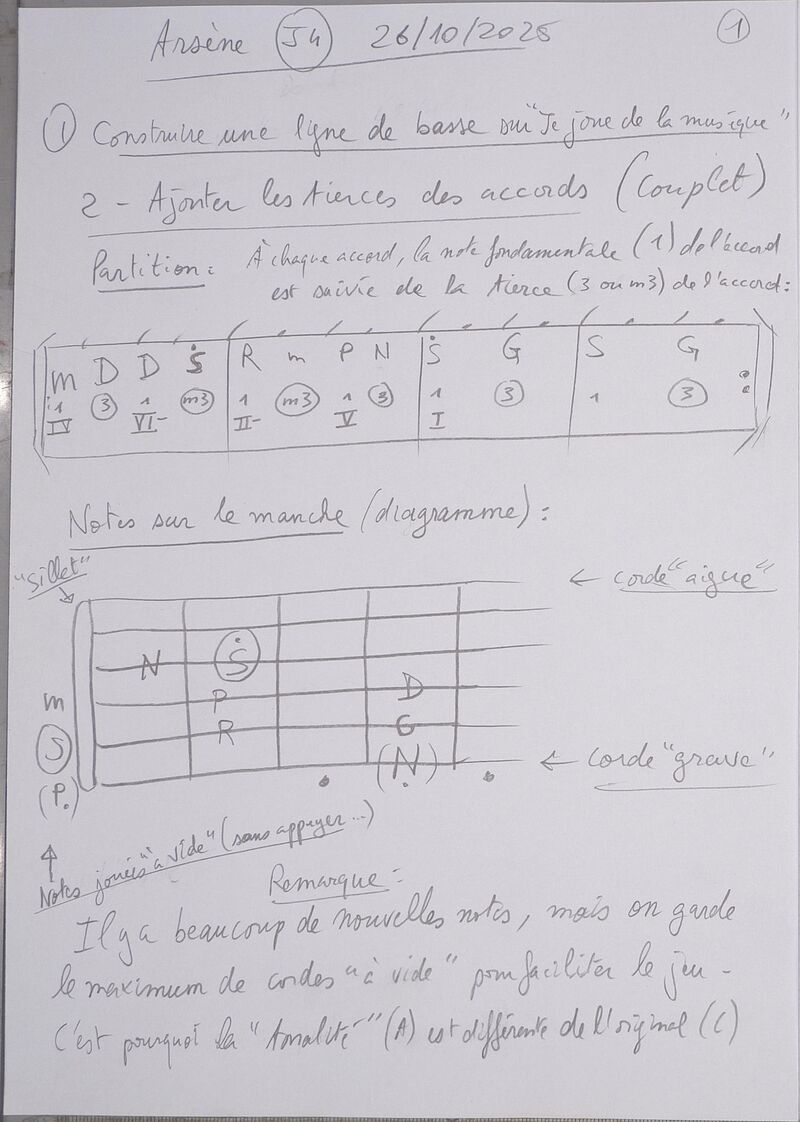 Arsène J4 26/10/2025 1
1 Construire une ligne de basse sur "Je joue de la musique"
2 - Ajouter les tierces des accords (Couplet)
Partition : À chaque accord, la note fondamentale (1) de l'accord
est suivie de la tierce (3 ou m3) de l'accord :
m D D Ṡ R m P N Ṡ G S G
1 3 1 m3 1 m3 1 3 1 3 1 3
IV VI- II- V I
Notes sur le manche (diagramme) :
"Sillet"
← corde "aigue"
N Ṡ
m P D
S R G
(Ṇ) ← corde "grave"
(P.)
Notes jouées "à vide" (sans appuyer...)
Remarque :
Il y a beaucoup de nouvelles notes, mais on garde
le maximum de cordes "à vide" pour faciliter le jeu -
C'est pourquoi la "tonalité" (A) est différente de l'original (C)